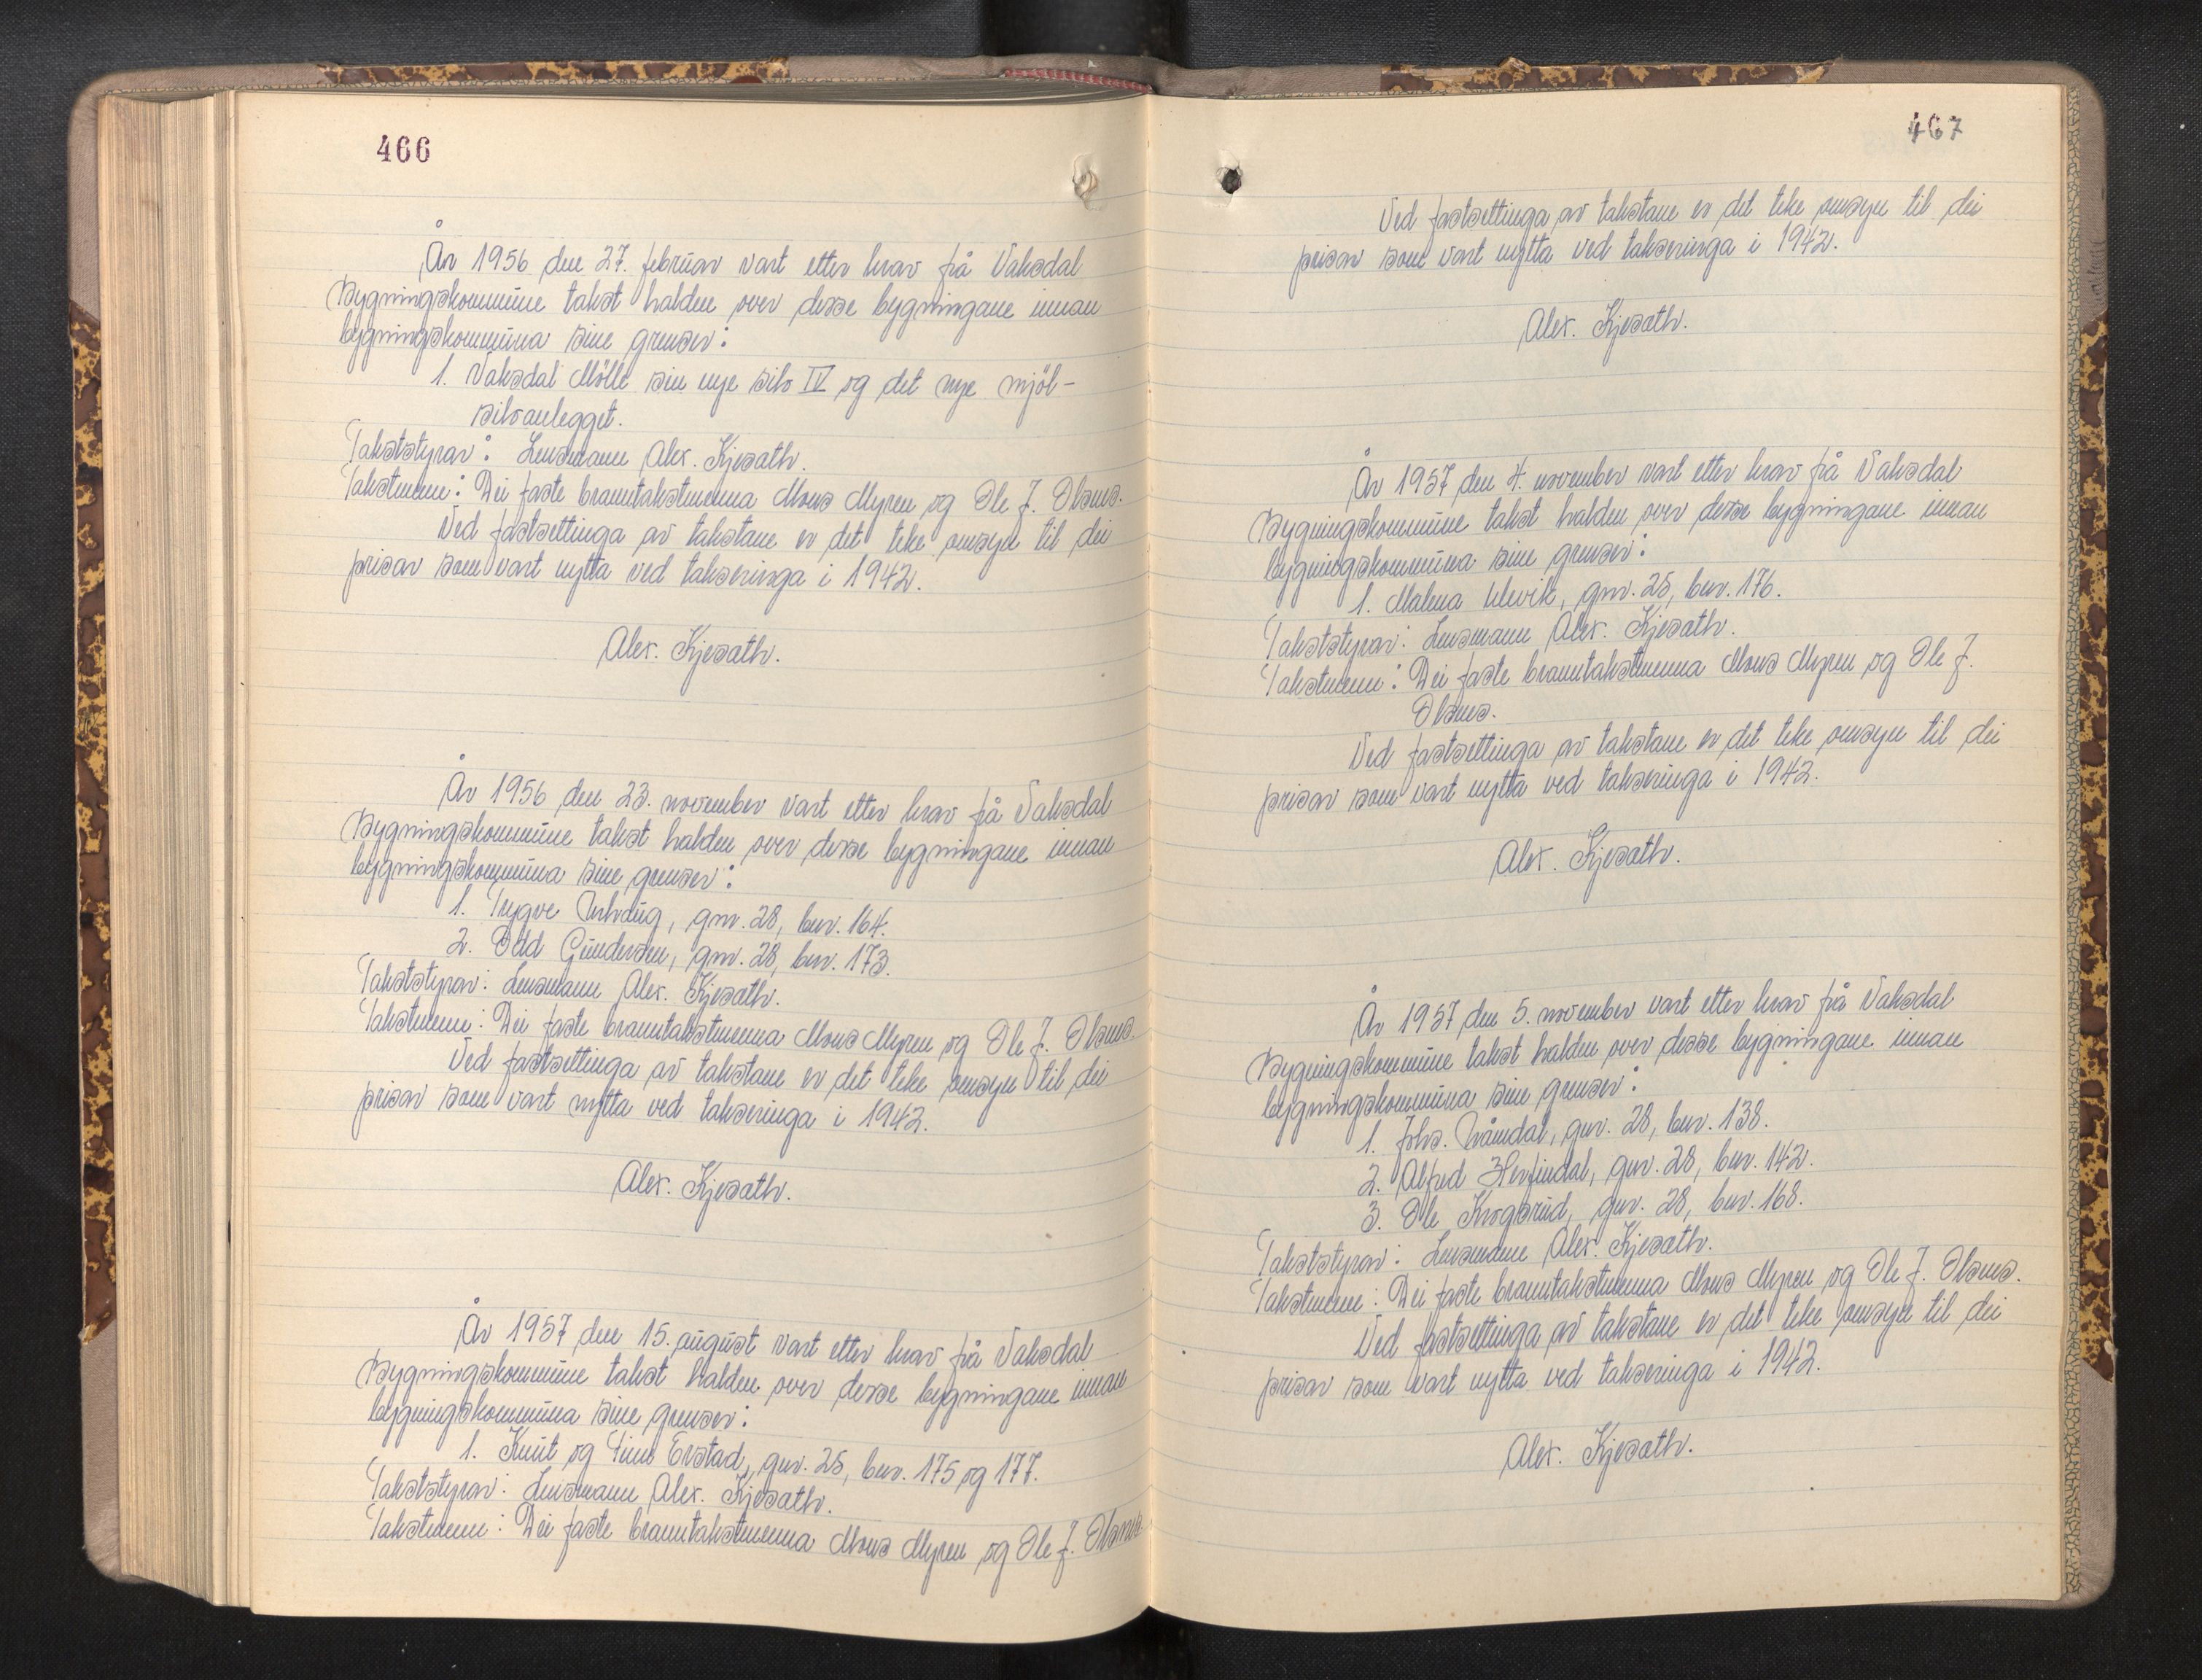 466
År 1956 den 27. februar vart etter krav frå Vaksdal
Bygningskommune takst halden over desse bygningane innan
bygningskommuna sine grenser:
1. Vaksdal Mölle sin nye silo IV og det nye mjöl-
siloanlegget.
Takststyrar: Lensmann Alex. Kjesath.
Takstmenn: Dei faste branntakstmenna Mons Myren og Ole J. Olsnes.
Ved fastsettinga av takstane er det teke omsyn til dei
prisar som vart nytta ved takseringa i 1942.
Alex. Kjesath.
År 1956 den 23. november vart etter krav frå Vaksdal
Bygningskommune takst halden over desse bygningane innan
bygningskommuna sine grenser:
1. Trygve, gnr. 28, bnr. 164.
2. Odd Gundersen, gnr. 28, bnr. 173.
Takststyrar: Lensmann Alex. Kjesath.
Takstmenn: Dei faste branntakstmenna Mons Myren og Ole J. Olsnes.
Ved fastsettinga av takstane er det teke omsyn til dei
prisar som vart nytta ved takseringa i 1942.
Alex. Kjesath.
År 1957 den 15. august vart etter krav frå Vaksdal
Bygningskommune takst halden over desse bygningane innan
bygningskommuna sine grenser:
1. Knut og Finn Erstad, gnr. 25, bnr. 175 og 177.
Takststyrar: Lensmann Alex. Kjesath.
Takstmenn: Dei faste branntakstmenna Mons Myren og Ole J. Olsnes.
467
Ved fastsettinga av takstane er det teke omsyn til dei
prisar som vart nytta ved takseringa i 1942.
Alex. Kjesath.
År 1957 den 4. november vart etter krav frå Vaksdal
Bygningskommune takst halden over desse bygningane innan
bygningskommuna sine grenser:
1. Malena Ulevik, gnr. 25, bnr. 176.
Takststyrar: Lensmann Alex. Kjesath.
Takstmenn: Dei faste branntakstmenna Mons Myren og Ole J.
Olsnes.
Ved fastsettinga av takstane er det teke omsyn til dei
prisar som vart nytta ved takseringa i 1942.
Alex. Kjesath.
År 1957 den 5. november vart etter krav frå Vaksdal
Bygningskommune takst halden over desse bygningane innan
bygningskommuna sine grenser:
1. Johs. Råmdal, gnr. 28, bnr. 138.
2. Alfred Herfindal, gnr. 28, bnr. 142.
3. Ole Krogsrud, gnr. 28, bnr. 168.
Takststyrar: Lensmann Alex. Kjesath.
Takstmenn: Dei faste branntakstmenna Mons Myren og Ole J. Olsnes.
Ved fastsettinga av takstane er det teke omsyn til dei
prisar som vart nytta ved takseringa i 1942.
Alex. Kjesath.